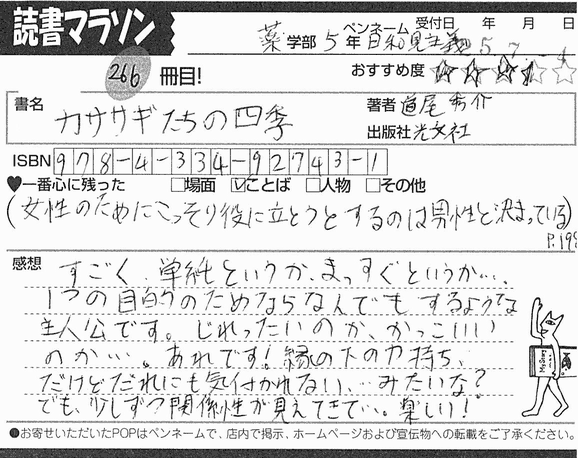 読書マラソン
薬学部 5年 ペンネーム 日和見主義 受付日 5年 7月 4日
266冊目!
おすすめ度 ☆☆☆☆☆
書名 カササギたちの四季
著者 道尾秀介
出版社 光文社
ISBN 978-4-334-92743-1
♥一番心に残った □場面 ☑ことば □人物 □その他
(女性のためにこっそり役に立とうとするのは男性と決まっている)
P.199
感想
すごく、単純というか、まっすぐというか…、
1つの目的のためならなんでもするような
主人公です。じれったいのか、かっこいい
のか…。あれです!縁の下の力持ち、
だけどだれにも気付かれない、…みたいな?
でも、少しずつ関係性が見えてきて…。楽しい!
●お寄せいただいたPOPはペンネームで、店内で掲示、ホームページおよび宣伝物への転載をご了承ください。